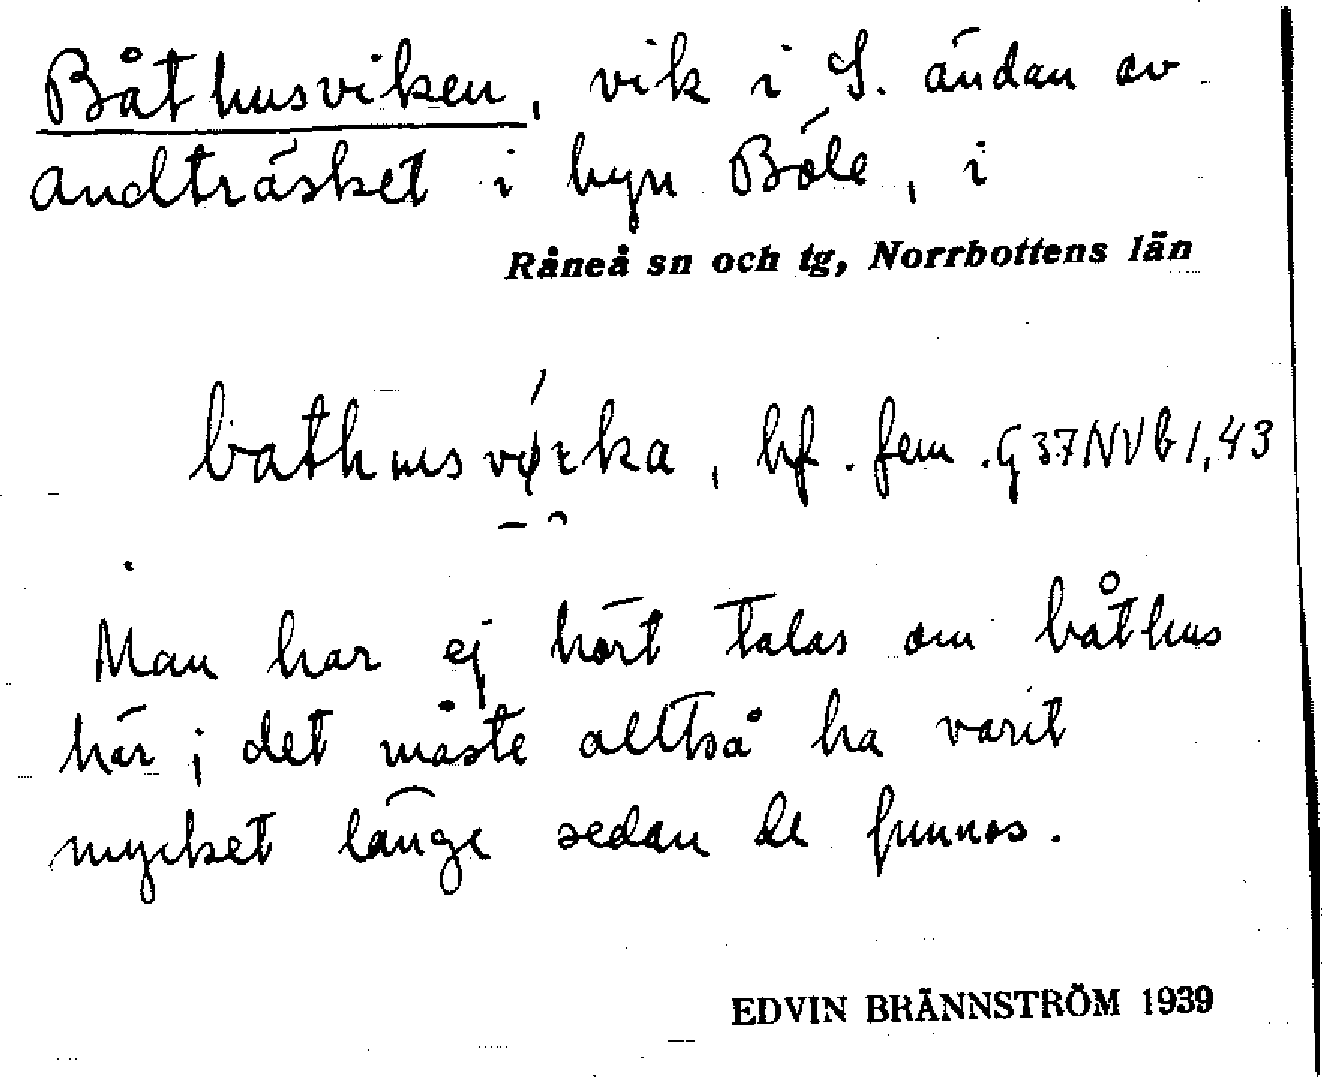 Båthusviken, vik i S. ändan av
andträsket i byn Böle, i
Råneå sn och tg, Norrbottens län
bf. fem. G37NVb1,43
Man har ej hört talas om båthus
här; det måste alltså ha varit
mycket länge sedan de funnos.
EDVIN BRÄNNSTRÖM 1939